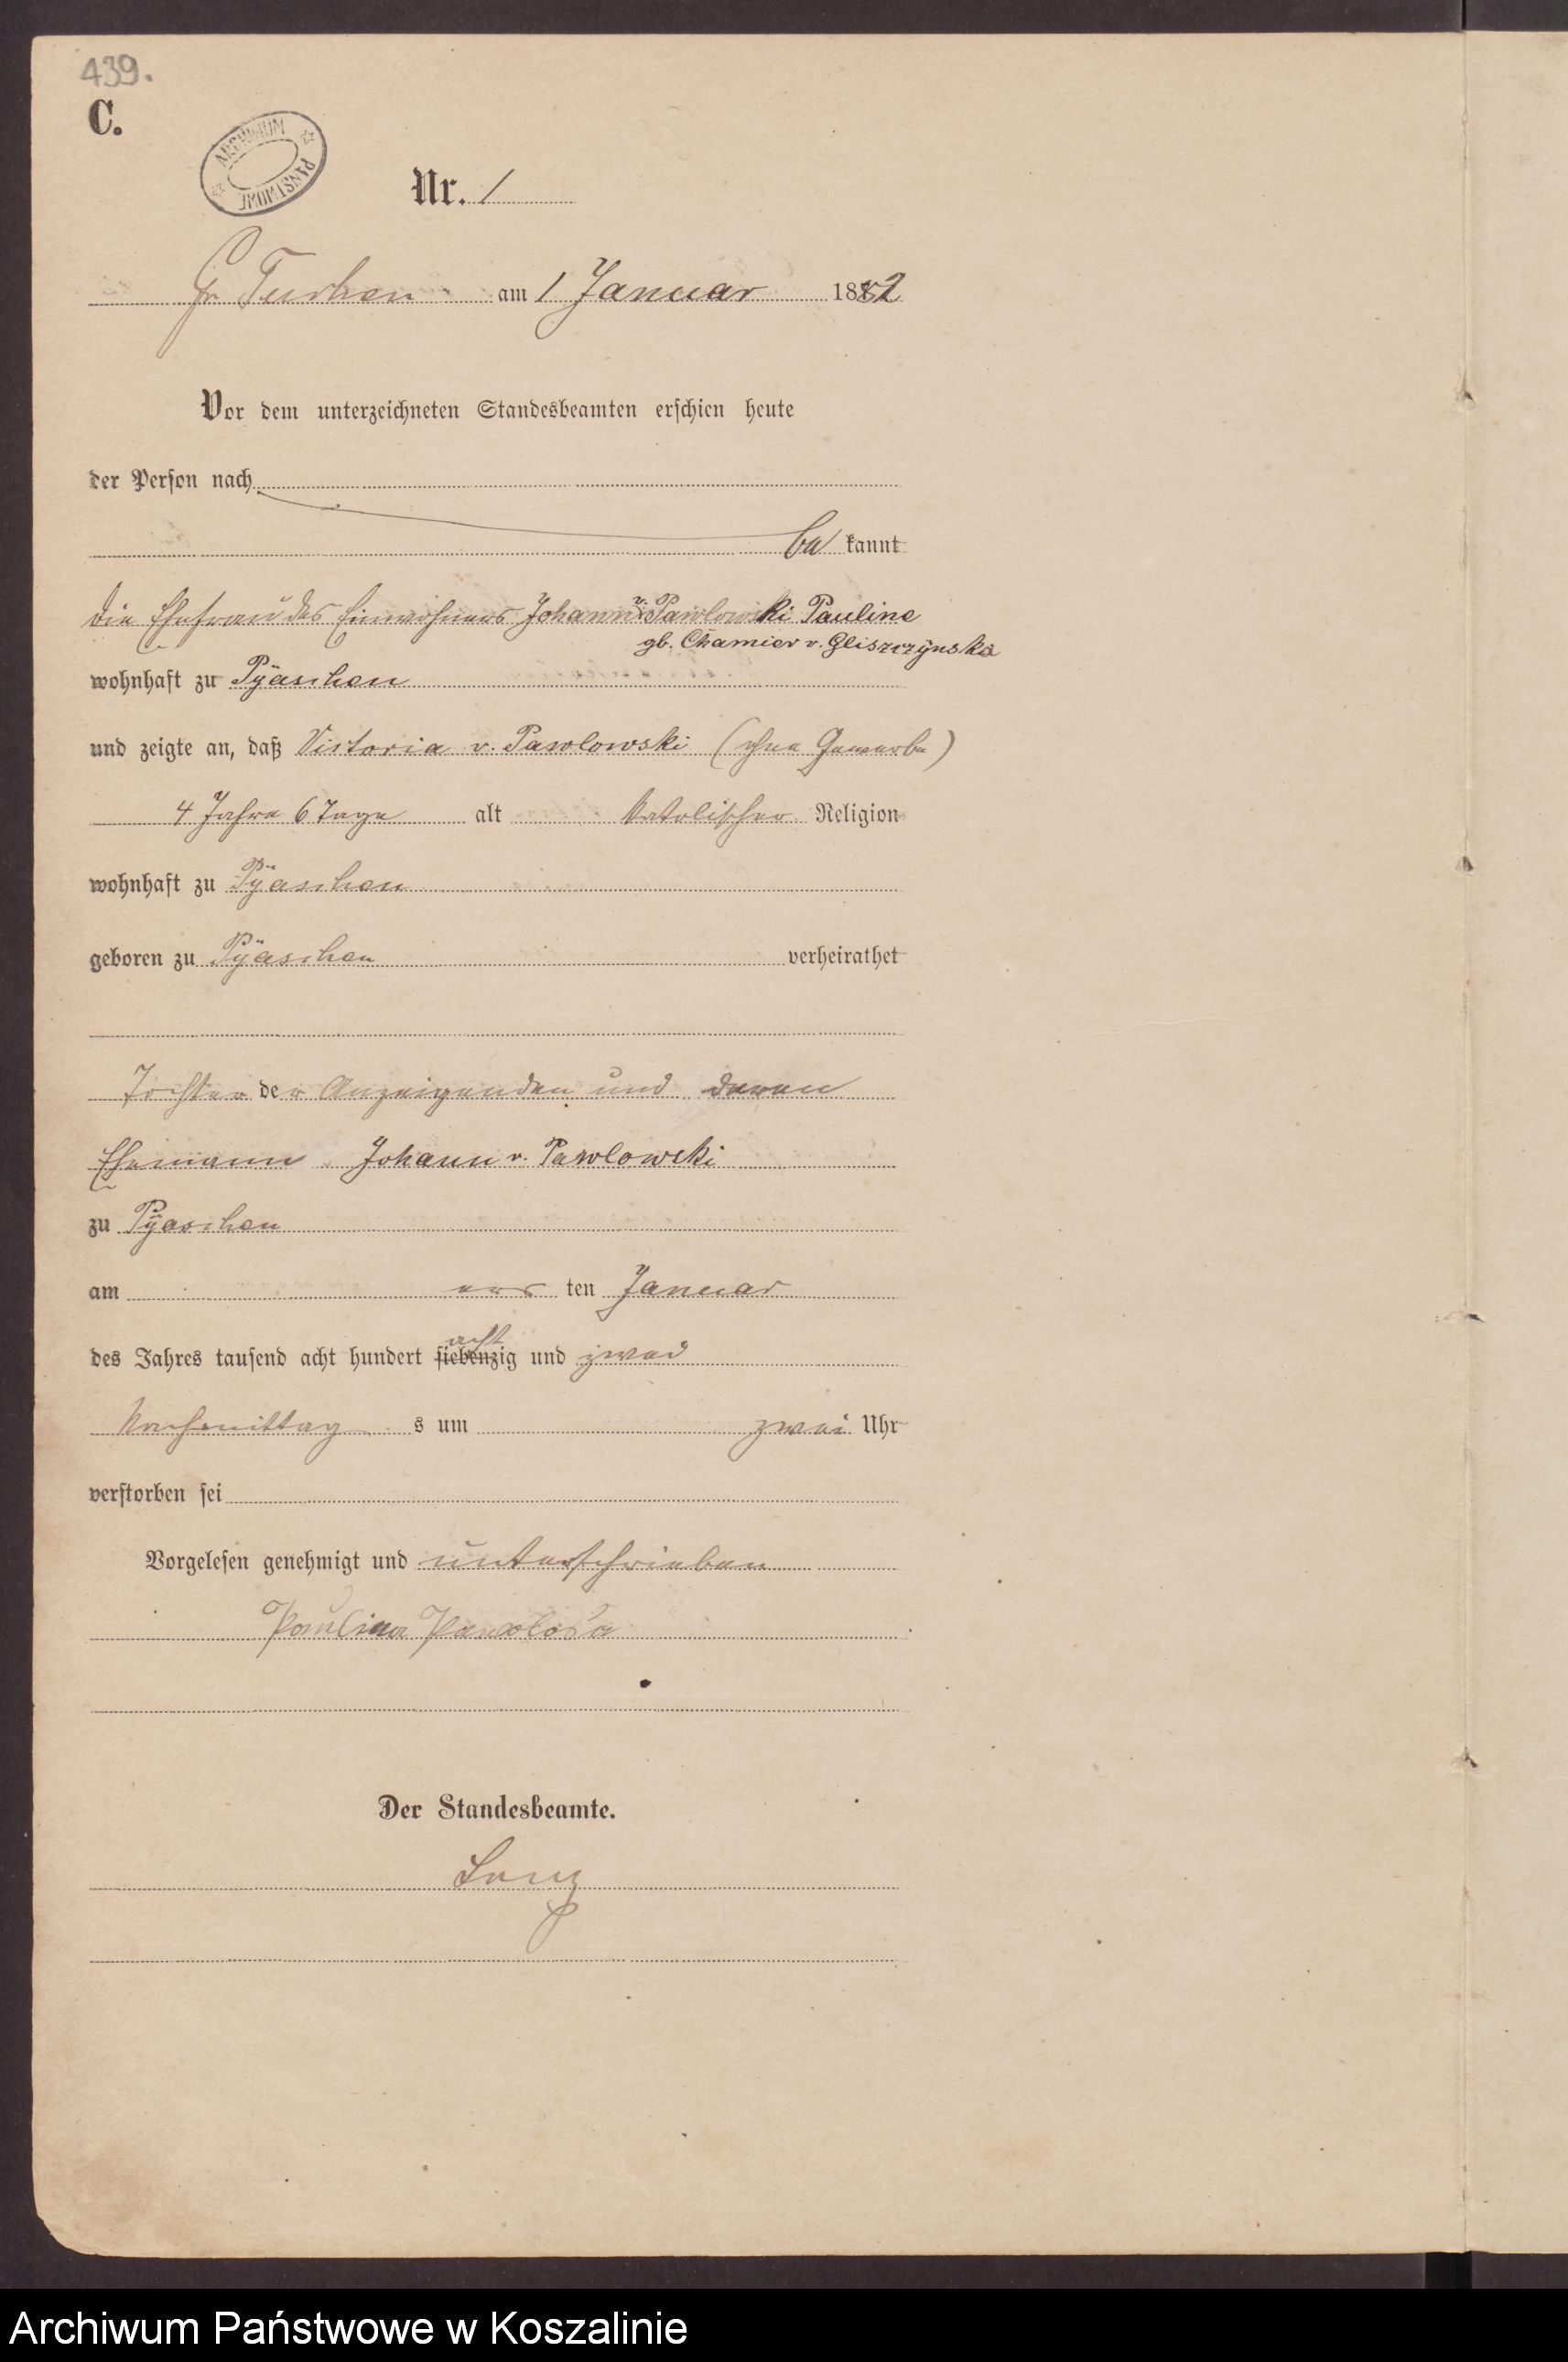 439.
C.
ARCHIWUM PAŃSTWOWE
Nr. 1
Gr Tuchen am 1 Januar 1882
Vor dem unterzeichneten Standesbeamten erschien heute
der Person nach
be kannt
die Ehefrau des Einwohners Johann v. Pawlowski Pauline
gb. Chamier v. Gliszczÿnska
wohnhaft zu Pÿaschen
und zeigte an, daß Victoria v. Pawlowski (ohne Gewerbe)
4 Jahre 6 Tage alt katolischer Religion
wohnhaft zu Pÿaschen
geboren zu Pÿaschen verheirathet
Tochter der Anzeigenden und deren
Ehemann Johann v. Pawlowski
zu Pÿaschen
am ten Januar
acht
des Jahres tausend acht hundert siebenzig und zwei
Nachmittag s um zwei Uhr
verstorben sei
Vorgelesen genehmigt und unterschrieben
Paulina
Der Standesbeamte.
Archiwum Państwowe w Koszalinie